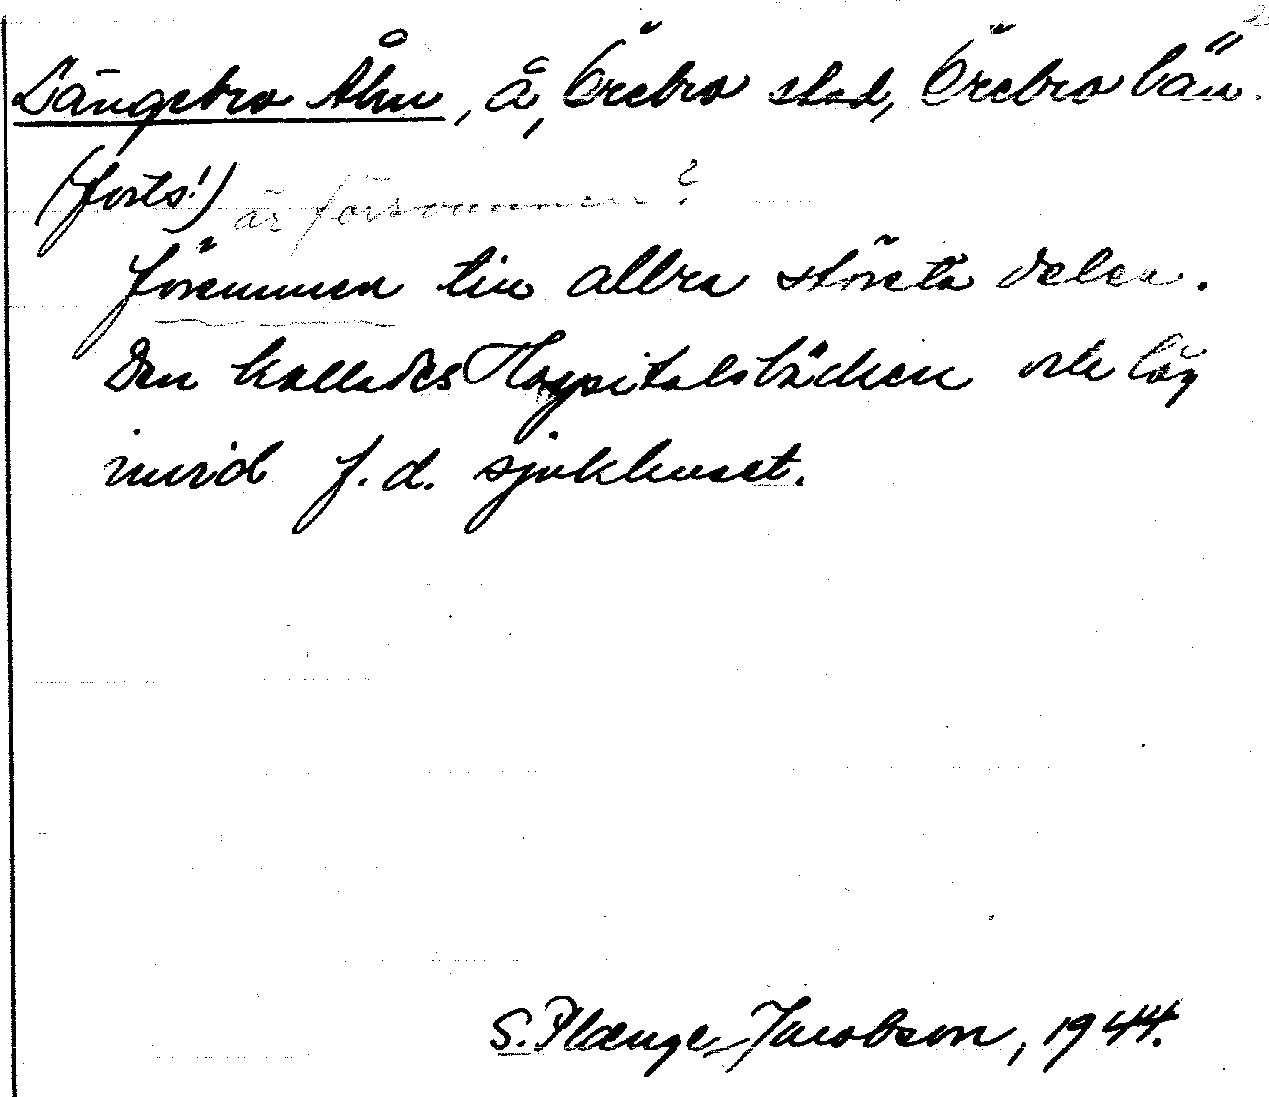 Längebro Ålm, å, Örebro stad, Örebro län.
(forts!) är försvunnen?
förummen till allra största delen.
Den kallades Hospitalsbäcken och låg
invid f.d. sjukhuset.
S. Plænge-Jacobson, 1944.